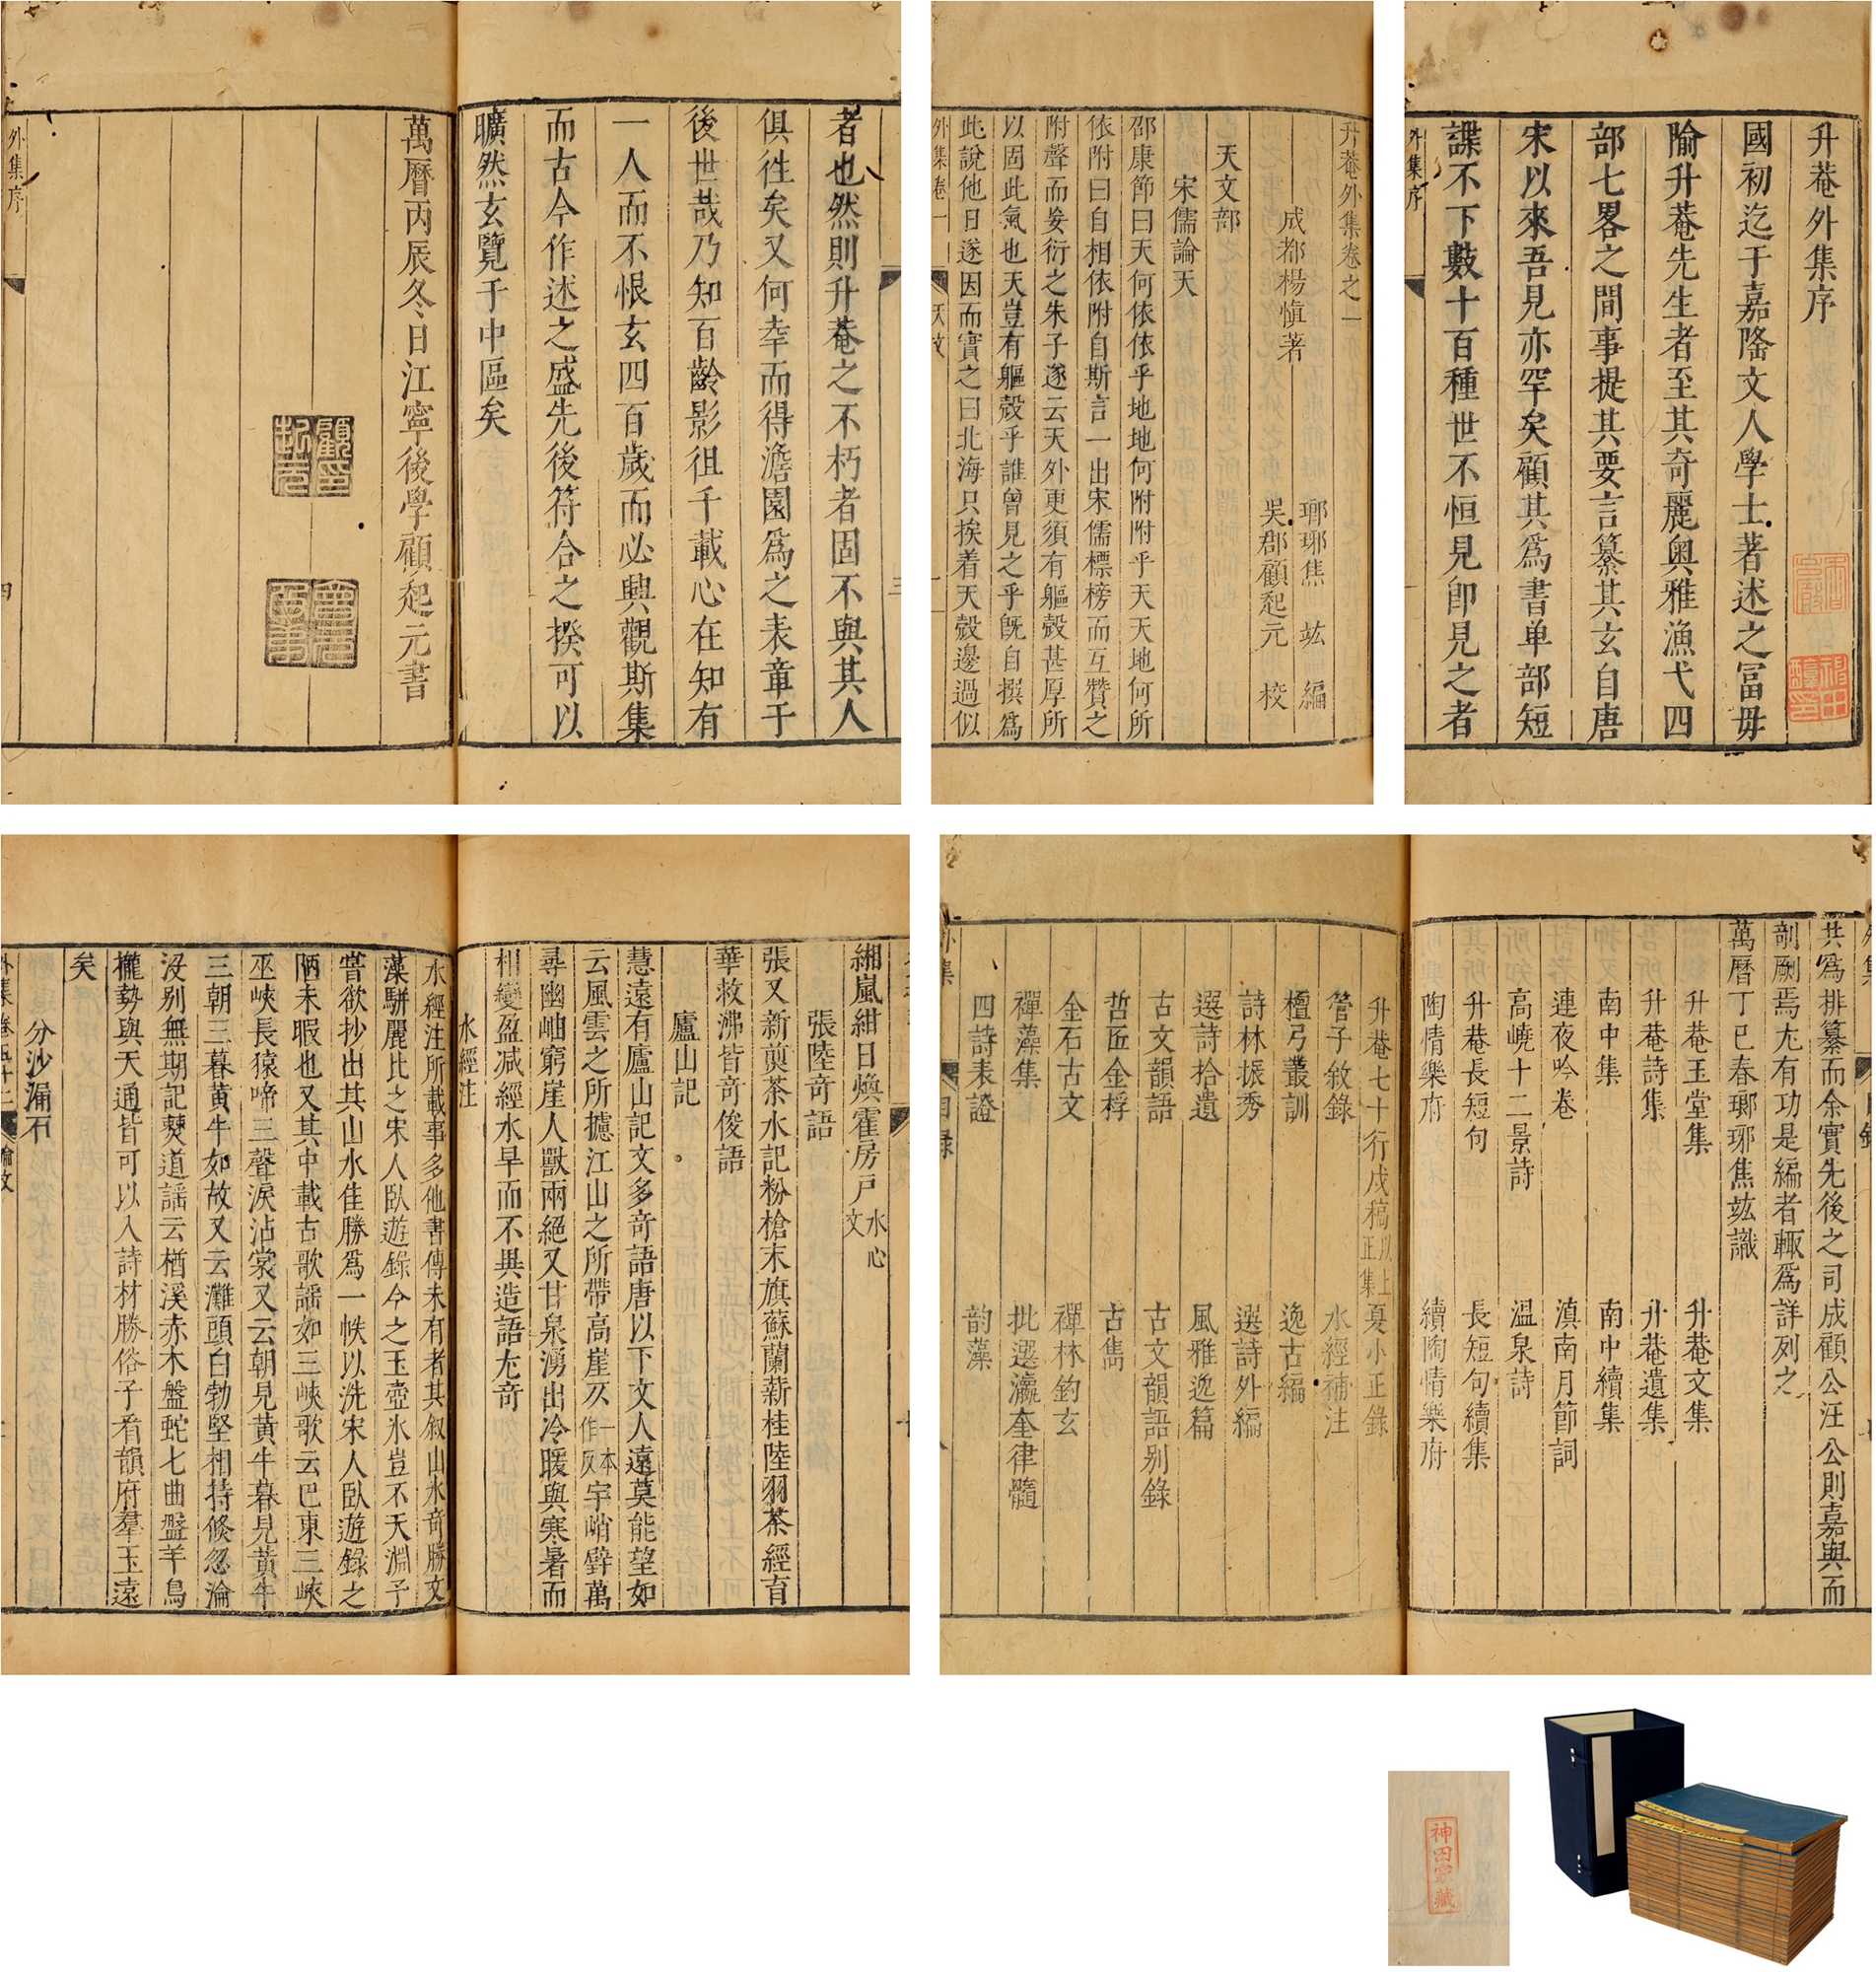 升菴外集序
國初迄于嘉隆文人學士著述之冨毋
隃升菴先生者至其奇麗奥雅漁弋四
部七畧之間事提其要言纂其玄自唐
宋以來吾見亦罕矣顧其爲書单部短
諜不下數十百種世不恒見卽見之者
外集序
升菴外集卷之一
成都楊慎著
瑯琊焦竑編
吳郡顧起元校
天文部
宋儒論天
邵康節曰天何依依乎地地何附附乎天天地何所
依附曰自相依附自斯言一出宋儒標榜而互贊之
附聲而妄衍之朱子遂云天外更須有軀殻甚厚所
以固此氣也天豈有軀殻乎誰曾見之乎旣自撰爲
此說他日遂因而實之曰北海只挨着天殻邊過似
外集卷一
天文
一
者也然則升菴之不朽者固不與其人
俱徃矣又何幸而得澹園爲之表章于
後世哉乃知百齡影徂千載心在知有
一人而不恨玄四百歲而必興觀斯集
而古今作述之盛先後符合之揆可以
曠然玄覽于中區矣
萬曆丙辰冬日江寧後學顧起元書
顧起元印
外集序
四
共爲排纂而余實先後之司成顧公汪公則嘉與而
剞劂焉尤有功是編者輒爲詳列之
萬曆丁巳春瑯琊焦竑識
升菴玉堂集 升菴文集
升菴詩集 升菴遺集
南中集 南中續集
連夜吟卷 滇南月節詞
高嶢十二景詩 溫泉詩
升菴長短句 長短句續集
陶情樂府 續陶情樂府
升菴七十行戍稿以上正集 夏小正錄
管子敘錄 水經補注
檀弓叢訓 逸古編
詩林振秀 選詩外編
選詩拾遺 風雅逸篇
古文韻語 古文韻語别錄
哲匠金桴 古雋
金石古文 禪林鈎玄
禪藻集 批選瀛奎律髓
四詩表證 韵藻
外集
目錄
緗嵐紺日煥霍房戸水心文
張陸奇語
張又新煎茶水記粉槍末旗蘇蘭薪桂陸羽茶經育
華救沸皆奇俊語
廬山記
慧遠有廬山記文多奇語唐以下文人遠莫能望如
云風雲之所攄江山之所帶高崖仄一本作反宇峭壁萬
尋幽岫窮崖人獸兩絕又甘泉湧出冷暖與寒暑而
相變盈減經水旱而不異造語尤奇
水經注
水經注所載事多他書傳未有者其叙山水奇勝文
藻駢麗比之宋人臥遊錄今之玉壺氷豈不天淵予
嘗欲抄出其山水佳勝爲一帙以洗宋人臥遊録之
陋未暇也又其中載古歌謡如三峽歌云巴東三峽
巫峽長猿啼三聲淚沾裳又云朝見黃牛暮見黃牛
三朝三暮黄牛如故又云灘頭白勃堅相持倏忽淪
没别無期記僰道謡云楢溪赤木盤蛇七曲盤羊烏
櫳勢與天通皆可以入詩材勝俗子看韻府羣玉遠
矣
分沙漏石
外集卷五十二
論文
神田家藏